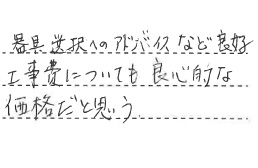 器具選択へのアドバイスなど良好
工事費についても良心的な
価格だと思う